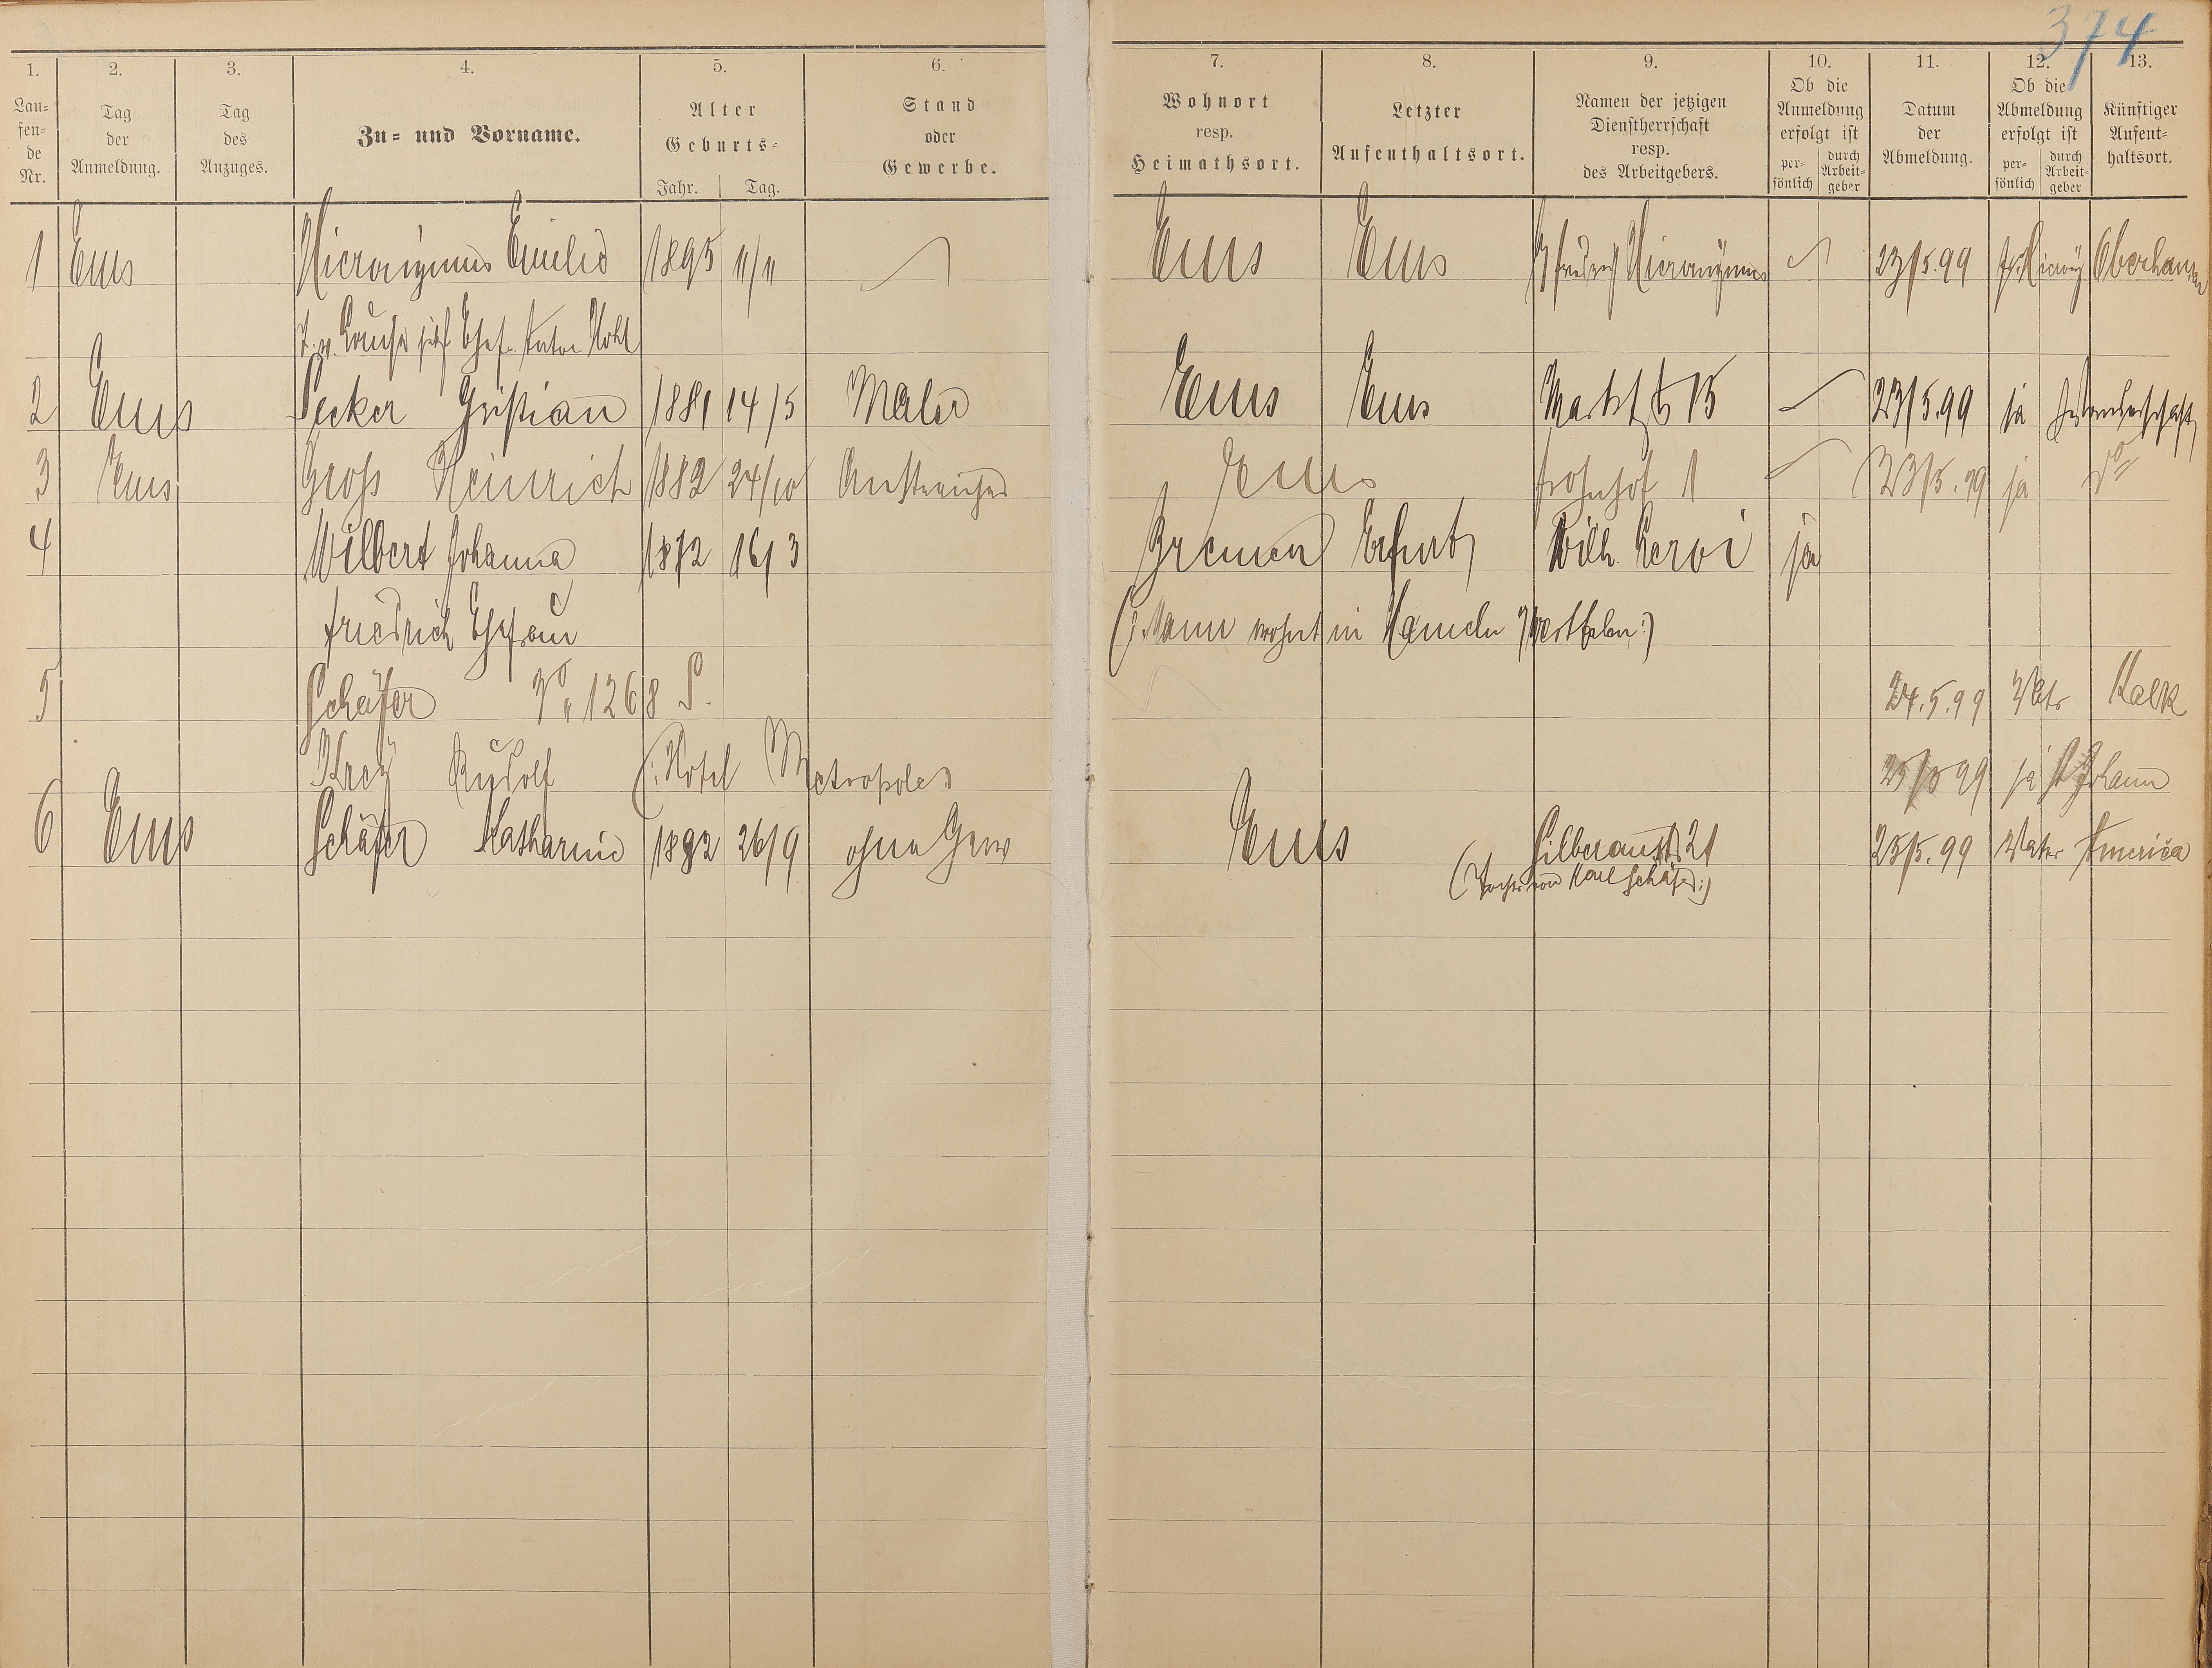 374
1. 2. 3. 4. 5. 6. 7. 8. 9. 10. 11. 12. 13.
Lau-
fen-
de
Nr.
Tag
der
Anmeldung.
Tag
des
Anzuges.
Zu- und Vorname.
Alter
Geburts-
Jahr. Tag.
Stand
oder
Gewerbe.
Wohnort
resp.
Heimathsort.
Letzter
Aufenthaltsort.
Namen der jetzigen
Dienstherrschaft
resp.
des Arbeitgebers.
Ob die
Anmeldung
erfolgt ist
per-
sönlich
durch
Arbeit-
geber
Datum
der
Abmeldung.
Ob die
Abmeldung
erfolgt ist
per-
sönlich
durch
Arbeit-
geber
Künftiger
Aufent-
haltsort.
1 Ems Hieronymus Emilie 1895 11/11 Ems Ems Hieronymus 23/5.99 Oberhausen
Ehef. Anton Kohl
2 Ems Becker Christian 1881 14/5 Maler Ems Ems Marktstr 15 23/5.99 ja
3 Ems Groß Heinrich 1882 24/10 Anstreicher Ems Frohnhof 1 23/5.99 ja do
4 Wilbert Johanna 1872 16/3 Bremen Erfurt Wilh. Leroi ja
Friedrich Ehefrau (: Mann wohnt in Hameln Westfalen :)
5 Schäfer No 1268 S. 24.5.99 Vater Kalk
Krey Rudolf (: Hotel Metropole 25/5 99 ja St Johann
6 Ems Schäfer Katharine 1892 26/9 ohne Gew Ems Silberaustr 21 25/5.99 Vater America
(: Tochter von Karl Schäfer :)